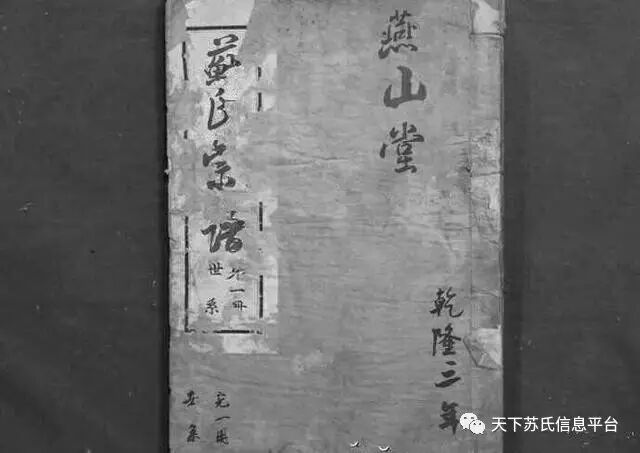 燕山堂
乾隆三年
蘇氏宗譜
第一冊
世系
第一冊
世系
天下苏氏信息平台